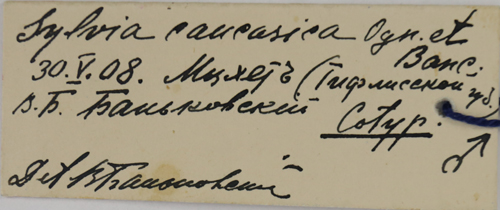 Sylvia caucasica Ogn. et Banc.
30.V.08. Мцхетъ (Тифлисской губ.)
В.Б. Баньковский Cotyp. ♂
Det В Баньковский